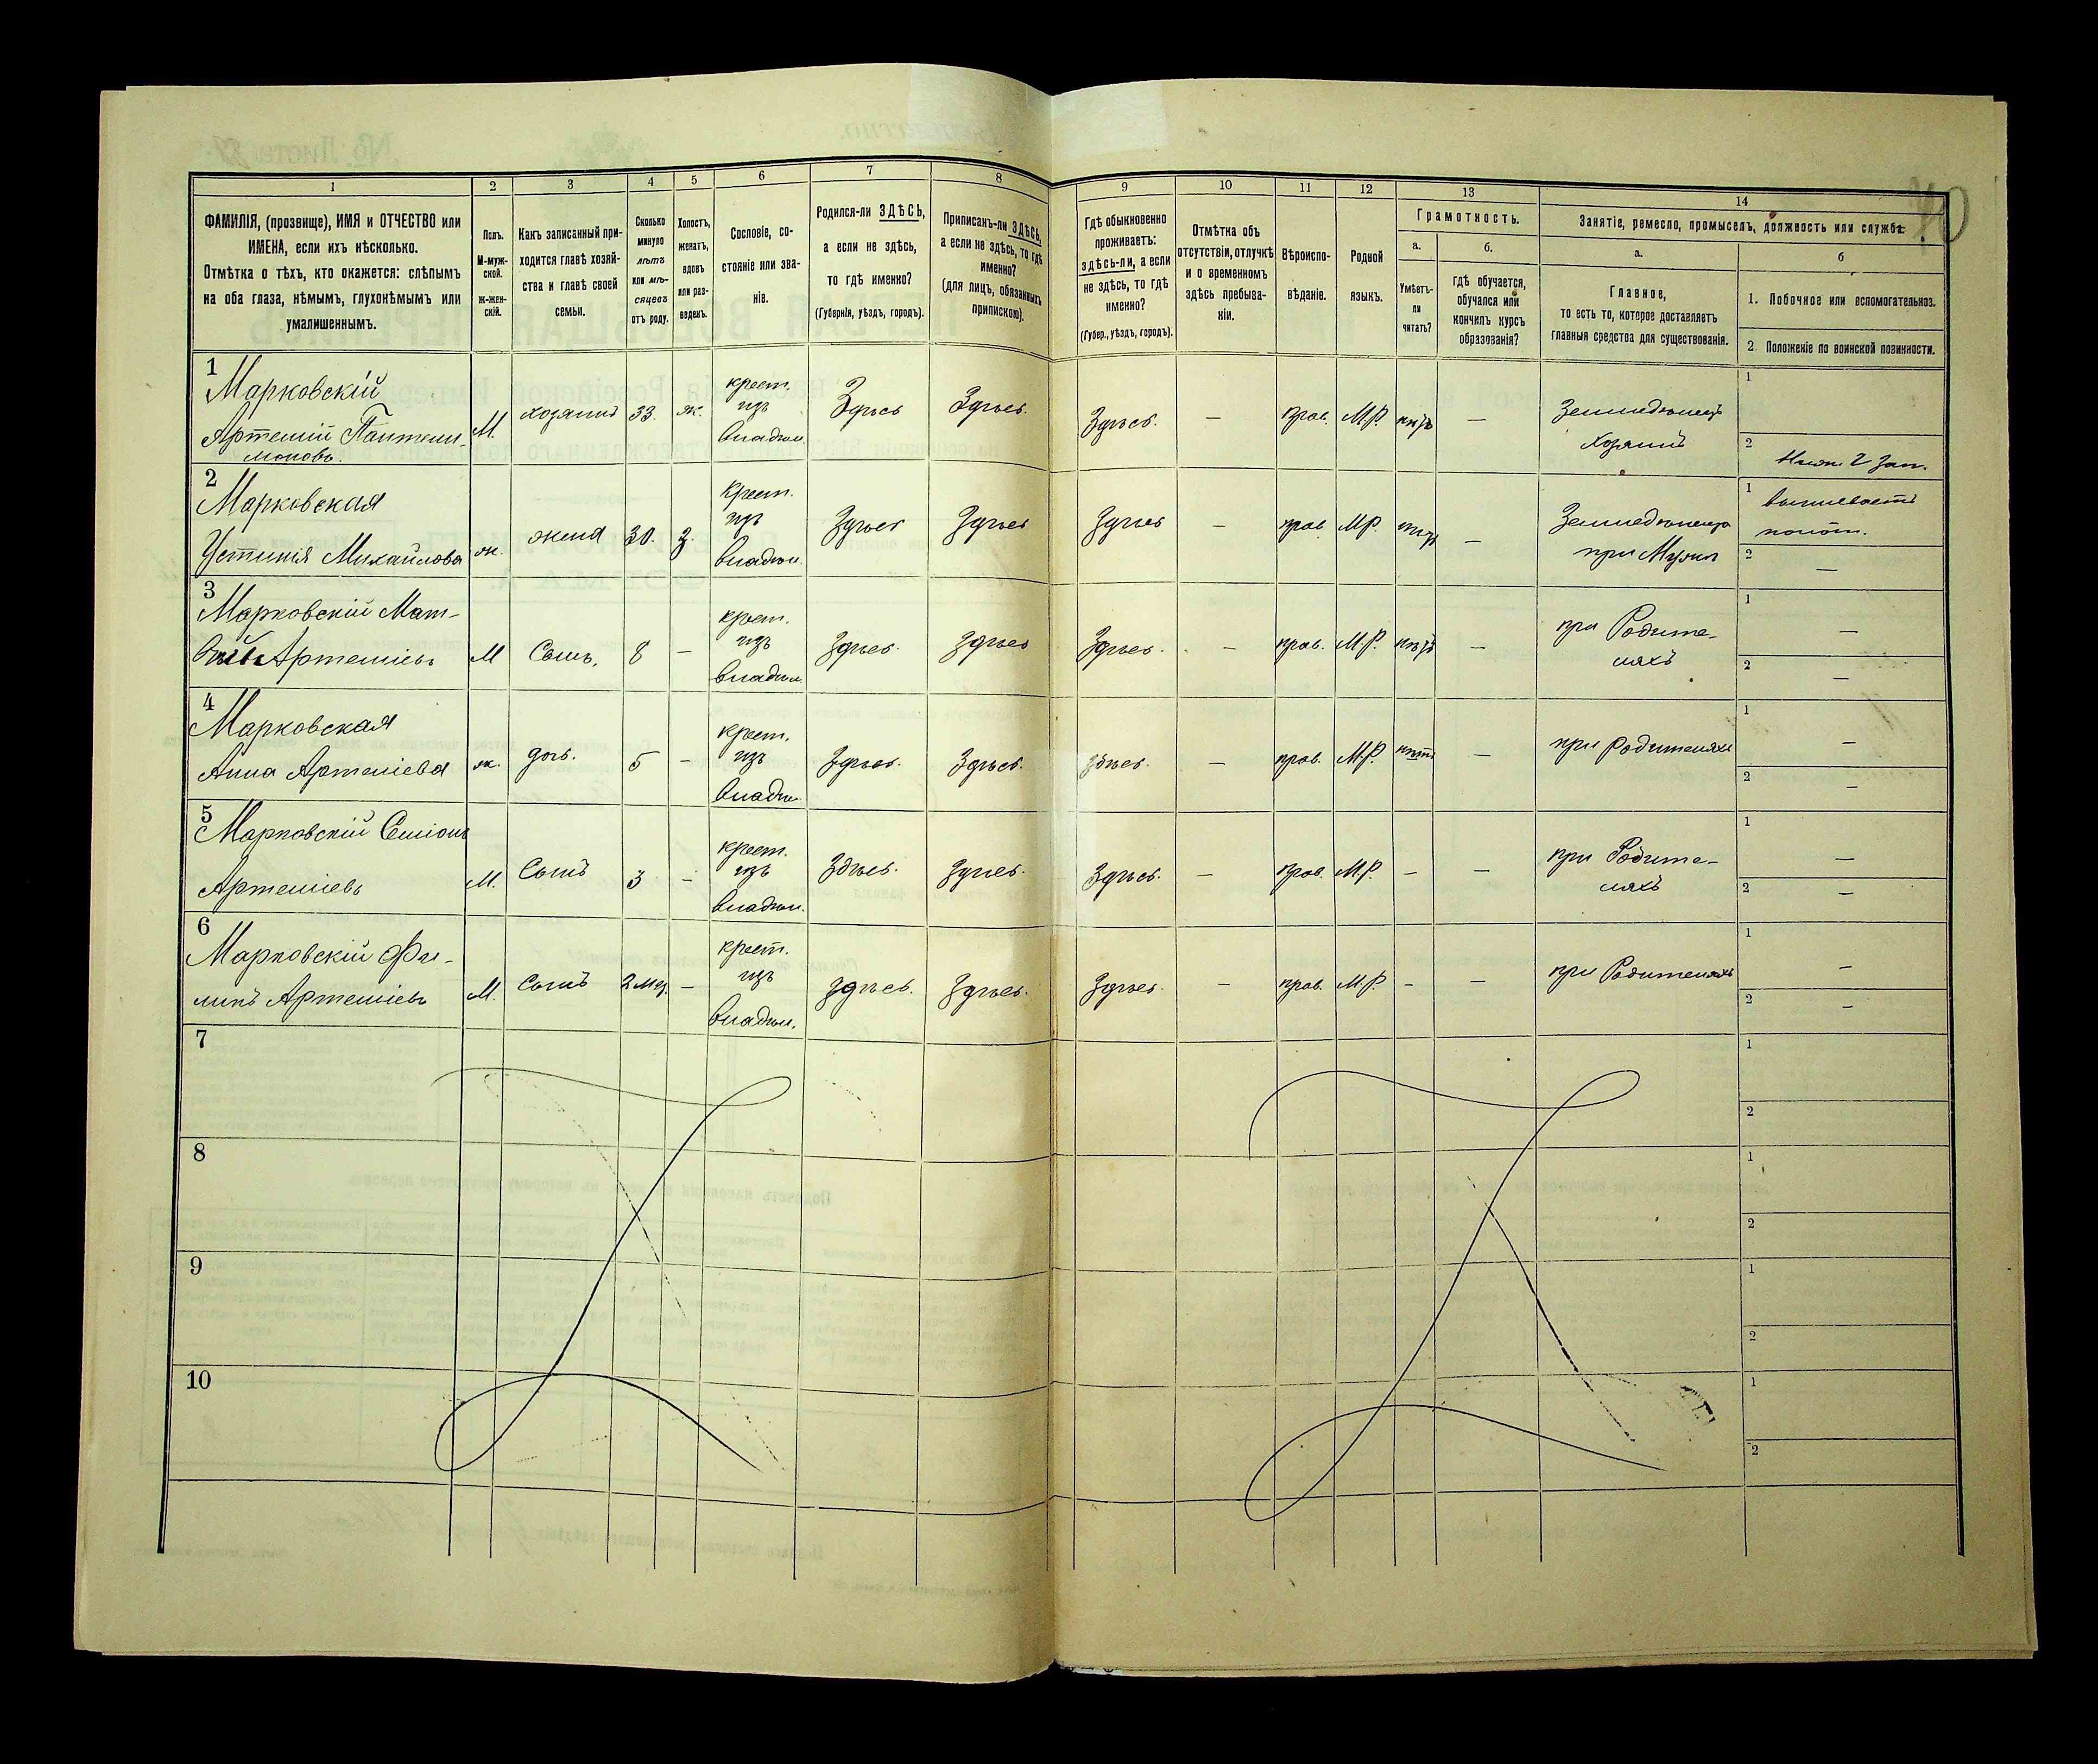 1 2 3 4 5 6 7 8 9 10 11 12 13 14
ФАМИЛІЯ, (прозвище), ИМЯ и ОТЧЕСТВО или
ИМЕНА, если ихъ нѣсколько.
Отмѣтка о тѣхъ, кто окажется: слѣпымъ
на оба глаза, нѣмымъ, глухонѣмымъ или
умалишеннымъ.
Полъ.
М-муж-
ской.
ж-жен-
скій.
Какъ записанный при-
ходится главѣ хозяй-
ства и главѣ своей
семьи.
Сколько
минуло
лѣтъ
или мѣ-
сяцевъ
отъ роду.
Холостъ,
женатъ,
вдовъ
или раз-
веденъ.
Сословіе, со-
стояніе или зва-
ніе.
Родился-ли ЗДѢСЬ,
а если не здѣсь,
то гдѣ именно?
(Губернія, уѣздъ, городъ).
Приписанъ-ли ЗДѢСЬ,
а если не здѣсь, то гдѣ
именно?
(для лицъ, обязанныхъ
припискою).
Гдѣ обыкновенно
проживаетъ:
здѣсь-ли, а если
не здѣсь, то гдѣ
именно?
(Губер., уѣздъ, городъ).
Отмѣтка объ
отсутствіи, отлучкѣ
и о временномъ
здѣсь пребыва-
ніи.
Вѣроиспо-
вѣданіе.
Родной
языкъ.
Грамотность.
а.
Умѣетъ-
ли
читать?
б.
гдѣ обучается,
обучался или
кончилъ курсъ
образованія?
Занятіе, ремесло, промыселъ, должность или служба.
а.
Главное,
то есть то, которое доставляетъ
главныя средства для существованія.
б
1. Побочное или вспомогательное.
2. Положеніе по воинской повинности.
1
Марковскій
Артемій Пантели-
моновъ.
М.
хозяинъ
33.
ж.
крест.
изъ
владѣл.
Здѣсь
Здѣсь.
Здѣсь.
—
прав.
М.Р.
нѣтъ
—
Земледѣлецъ
Хозяинъ
1
2
2
Марковская
Устинія Михайлова
ж.
жена
30.
З.
Крест.
изъ
владѣл.
Здѣсь
Здѣсь
Здѣсь
—
прав
М.Р.
нѣтъ
—
при Мужѣ
1 вышиваетъ
полот.
2 —
3
Марковскій Мат-
вѣй Артеміевъ
М
Сынъ.
8
—
крест.
изъ
владѣл.
Здѣсь.
Здѣсь
Здѣсь.
—
прав.
М.Р.
нѣтъ
—
при Родите-
ляхъ
1 —
2 —
4
Марковская
Анна Артеміева
ж.
дочь.
5
—
крест.
изъ
владѣ.
Здѣсь.
Здѣсь.
здѣсь.
—
прав.
М.Р.
нѣтъ
—
при родителяхъ
1 —
2 —
5
Марковскій Семіонъ
Артеміевъ
М.
Сынъ
3
—
крест.
изъ
владѣл.
Здѣсь.
Здѣсь.
Здѣсь.
—
прав.
М.Р.
—
—
при Родите-
ляхъ
1 —
2 —
6
Марковскій Фи-
липъ Артеміевъ
М.
сынъ
2 мѣс.
—
крест.
изъ
владѣл.
здѣсь.
Здѣсь.
Здѣсь.
—
прав.
М.Р.
—
—
при Родителяхъ
1 —
2 —
7
1
2
8
1
2
9
1
2
10
1
2